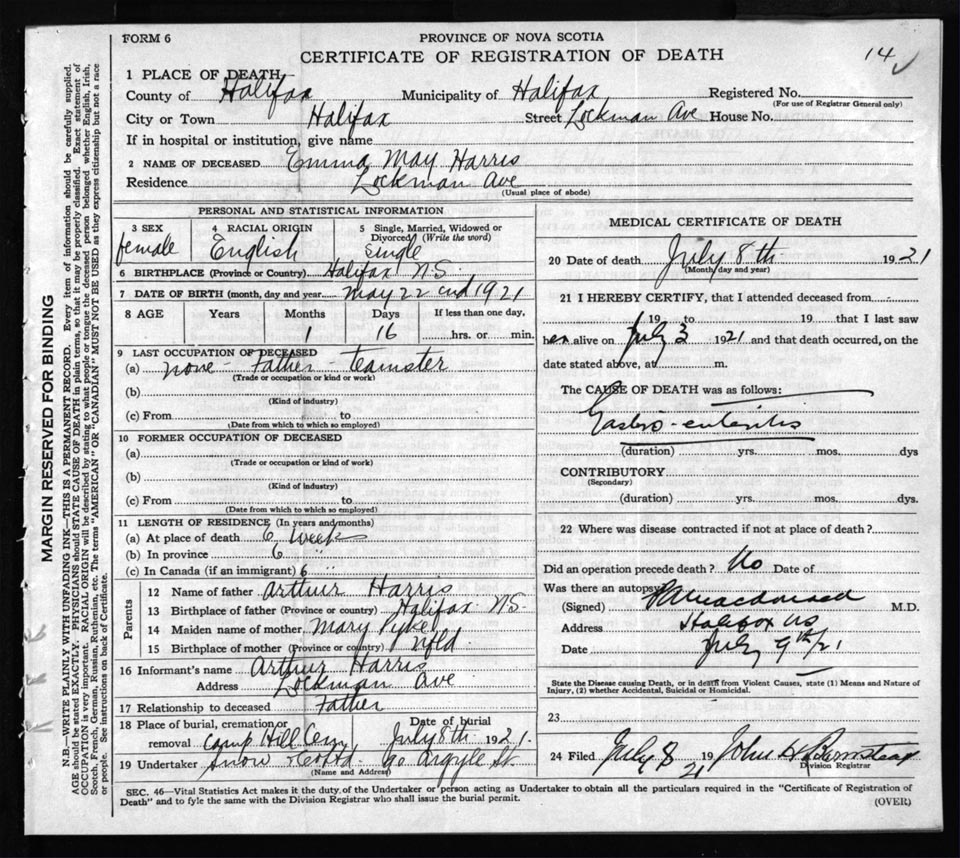 FORM 6
PROVINCE OF NOVA SCOTIA
14 ✓
CERTIFICATE OF REGISTRATION OF DEATH
1 PLACE OF DEATH
County of Halifax Municipality of Halifax Registered No.
(For use of Registrar General only)
City or Town Halifax Street Lockman Ave House No.
If in hospital or institution, give name
2 NAME OF DECEASED Emma May Harris
Residence Lockman Ave
(Usual place of abode)
PERSONAL AND STATISTICAL INFORMATION
3 SEX 4 RACIAL ORIGIN 5 Single, Married, Widowed or Divorced (Write the word)
female English Single
6 BIRTHPLACE (Province or Country) Halifax N.S.
7 DATE OF BIRTH (month, day and year) May 22 cnd 1921
8 AGE Years Months Days If less than one day,
1 16 hrs. or min.
9 LAST OCCUPATION OF DECEASED
(a) none - Father - Teamster
(Trade or occupation or kind or work)
(b)
(Kind of industry)
(c) From to
(Date from which to which so employed)
10 FORMER OCCUPATION OF DECEASED
(a)
(Trade or occupation or kind of work)
(b)
(Kind of industry)
(c) From to
(Date from which to which so employed)
11 LENGTH OF RESIDENCE (In years and months)
(a) At place of death 6 Weeks
(b) In province 6 "
(c) In Canada (if an immigrant) 6 "
Parents
12 Name of father Arthur Harris
13 Birthplace of father (Province or country) Halifax N.S.
14 Maiden name of mother Mary Pyke
15 Birthplace of mother (Province or country) Nfld
16 Informant's name Arthur Harris
Address Lockman Ave
17 Relationship to deceased Father
18 Place of burial, cremation or removal Camp Hill Cem Date of burial July 8th 1921.
19 Undertaker Snow & Co Ltd. 90 Argyle St.
(Name and Address)
MEDICAL CERTIFICATE OF DEATH
20 Date of death July 8th 1921
(Month, day and year)
21 I HEREBY CERTIFY, that I attended deceased from
19 to 19 that I last saw
her alive on July 3 1921 and that death occurred, on the
date stated above, at m.
The CAUSE OF DEATH was as follows:
Gastro-enteritis
(duration) yrs. mos. dys
CONTRIBUTORY
(Secondary)
(duration) yrs. mos. dys.
22 Where was disease contracted if not at place of death?
Did an operation precede death? No Date of
Was there an autopsy
(Signed) Macdonald M.D.
Address Halifax NS
Date July 9th/21
State the Disease causing Death, or in death from Violent Causes, state (1) Means and Nature of
Injury, (2) whether Accidental, Suicidal or Homicidal.
23
24 Filed July 8 1921 John H Barnstead
Division Registrar
SEC. 46—Vital Statistics Act makes it the duty of the Undertaker or person acting as Undertaker to obtain all the particulars required in the "Certificate of Registration of
Death" and to fyle the same with the Division Registrar who shall issue the burial permit.
(OVER)
MARGIN RESERVED FOR BINDING
N.B.—WRITE PLAINLY WITH UNFADING INK—THIS IS A PERMANENT RECORD. Every item of information should be carefully supplied.
AGE should be stated EXACTLY. PHYSICIANS should STATE CAUSE OF DEATH in plain terms, so that it may be properly classified. Exact statement of
OCCUPATION is very important. RACIAL ORIGIN will be described by stating to what people or tongue the deceased person belonged whether English, Irish,
Scotch, French, German, Russian, Ruthenian, etc. The terms "AMERICAN" OR "CANADIAN" MUST NOT BE USED as they express citizenship but not a race
or people. See instructions on back of Certificate.